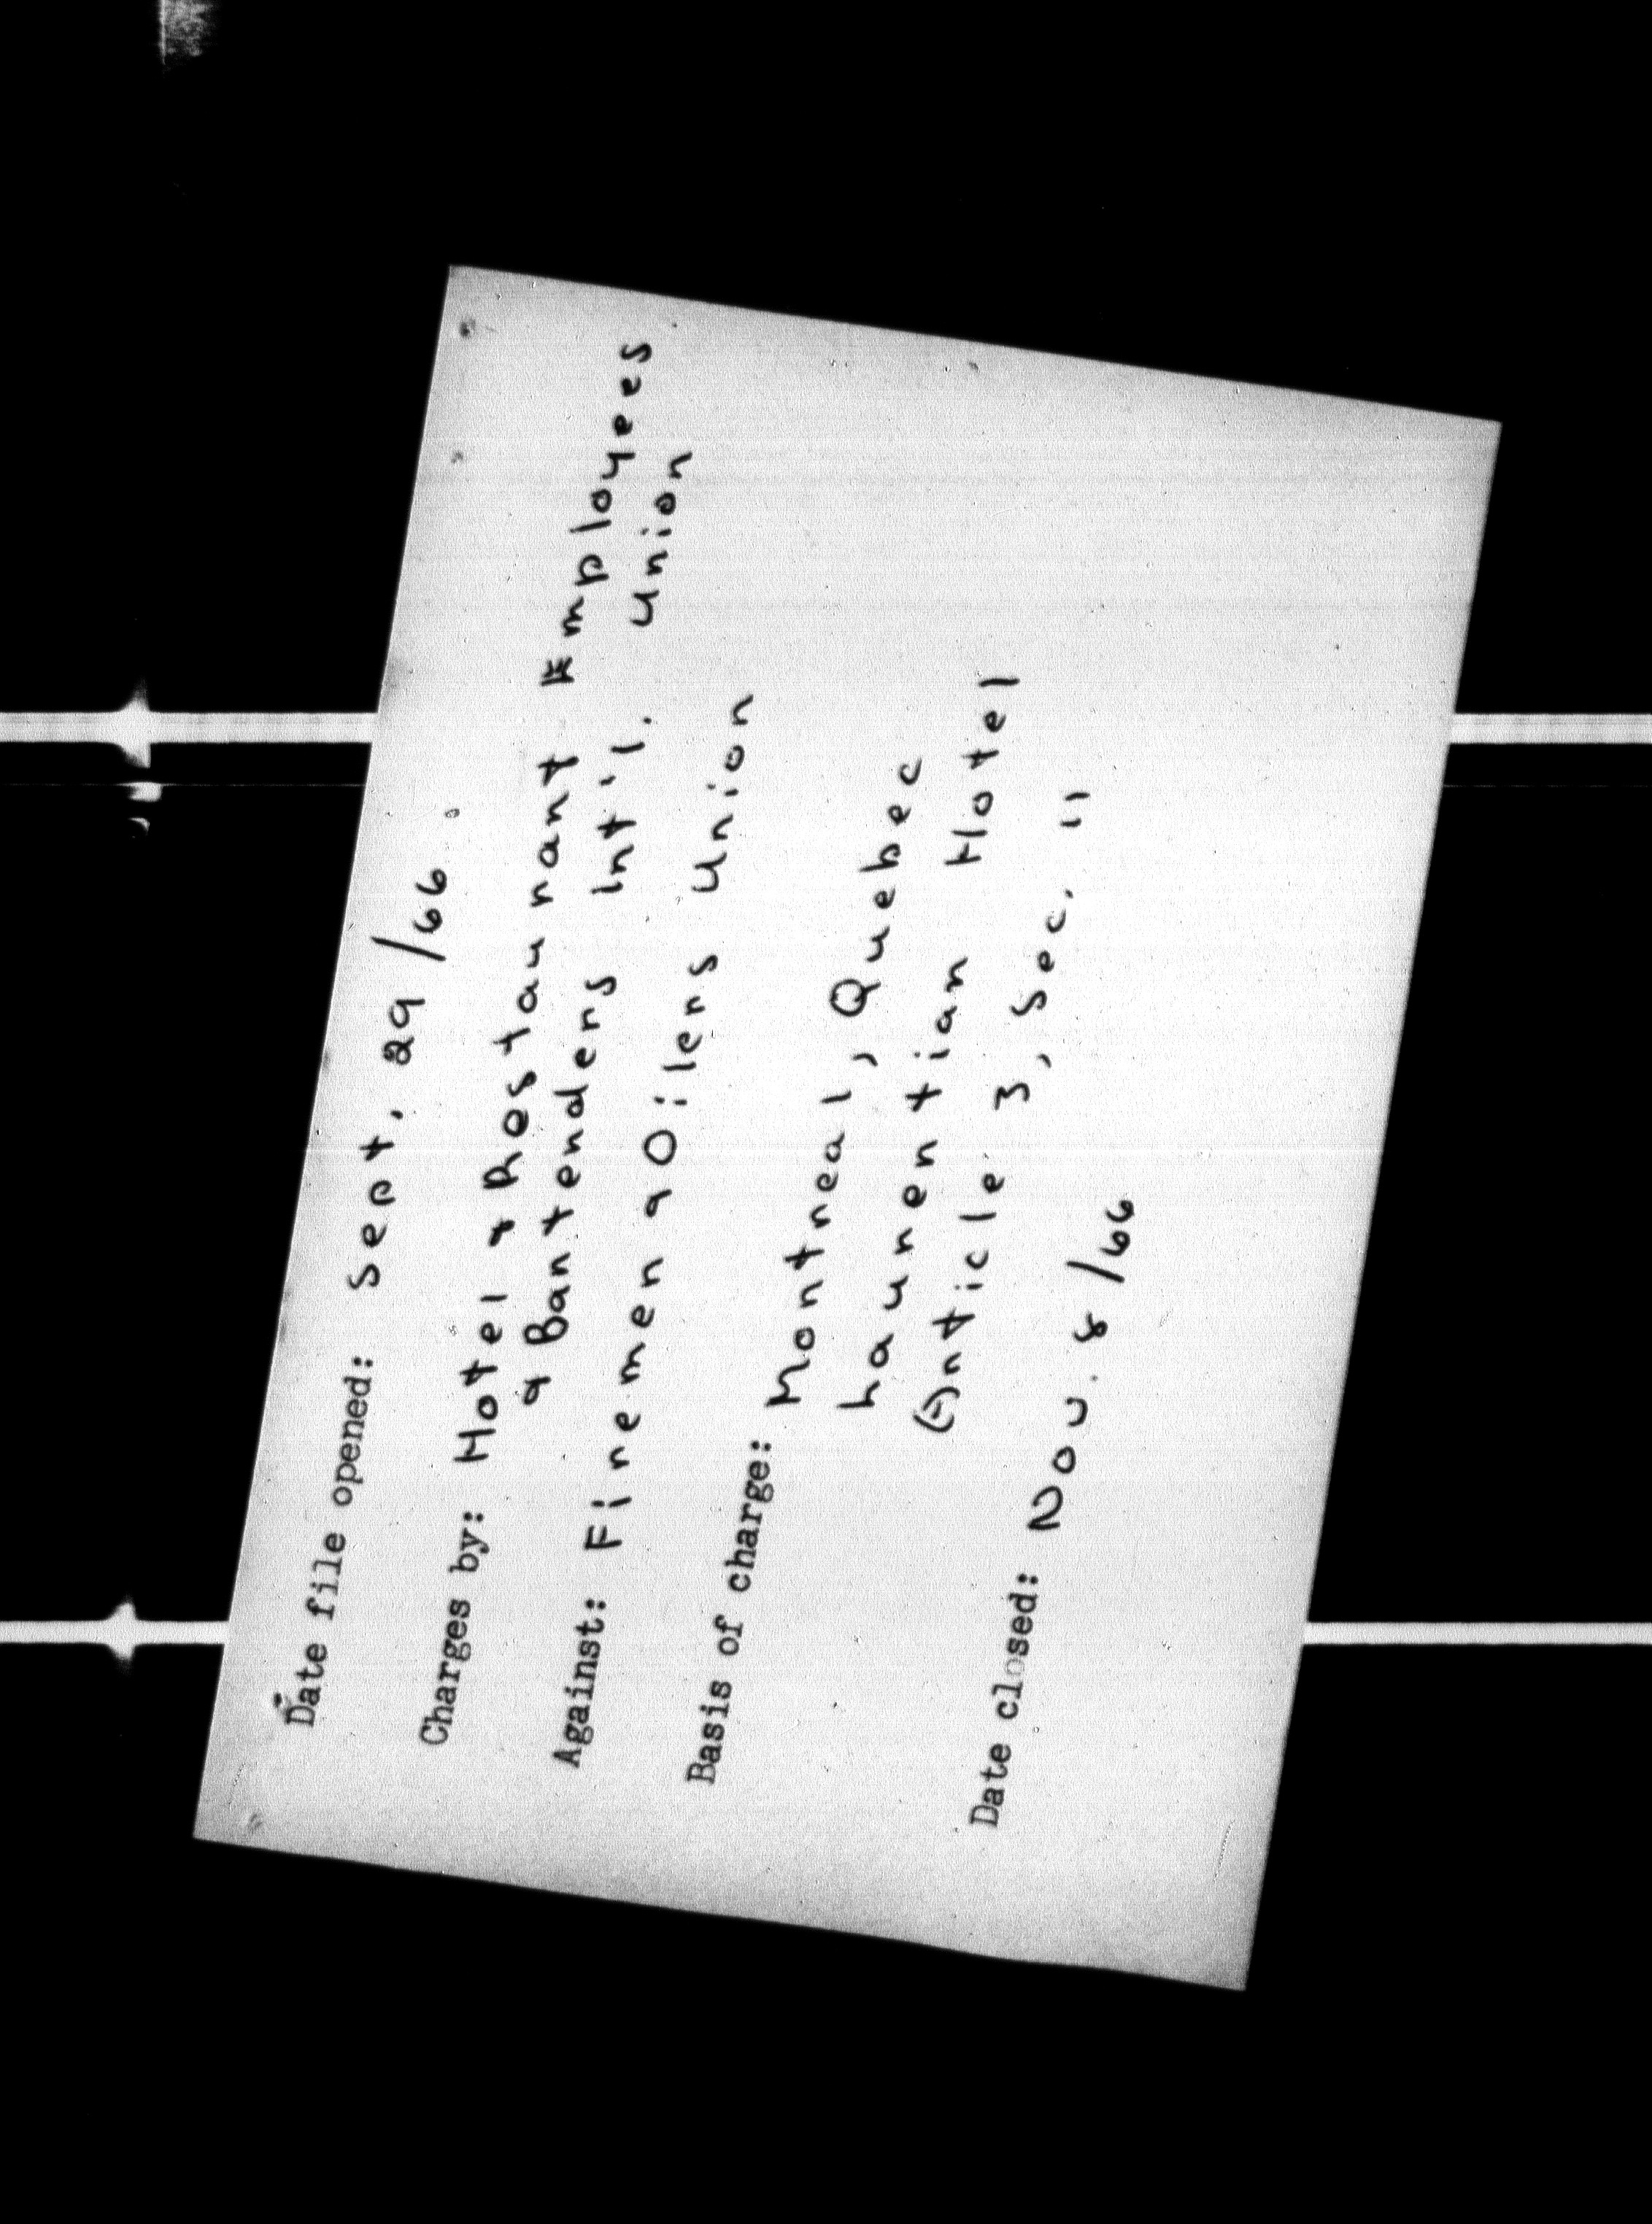 Date file opened: Sept. 29/66.
Charges by: Hotel & Restaurant Employees
& Bartenders Int'l. Union
Against: Firemen & Oilers Union
Basis of charge: Montreal, Quebec
Laurentian Hotel
Article 3, Sec. 11
Date closed: Nov. 8/66